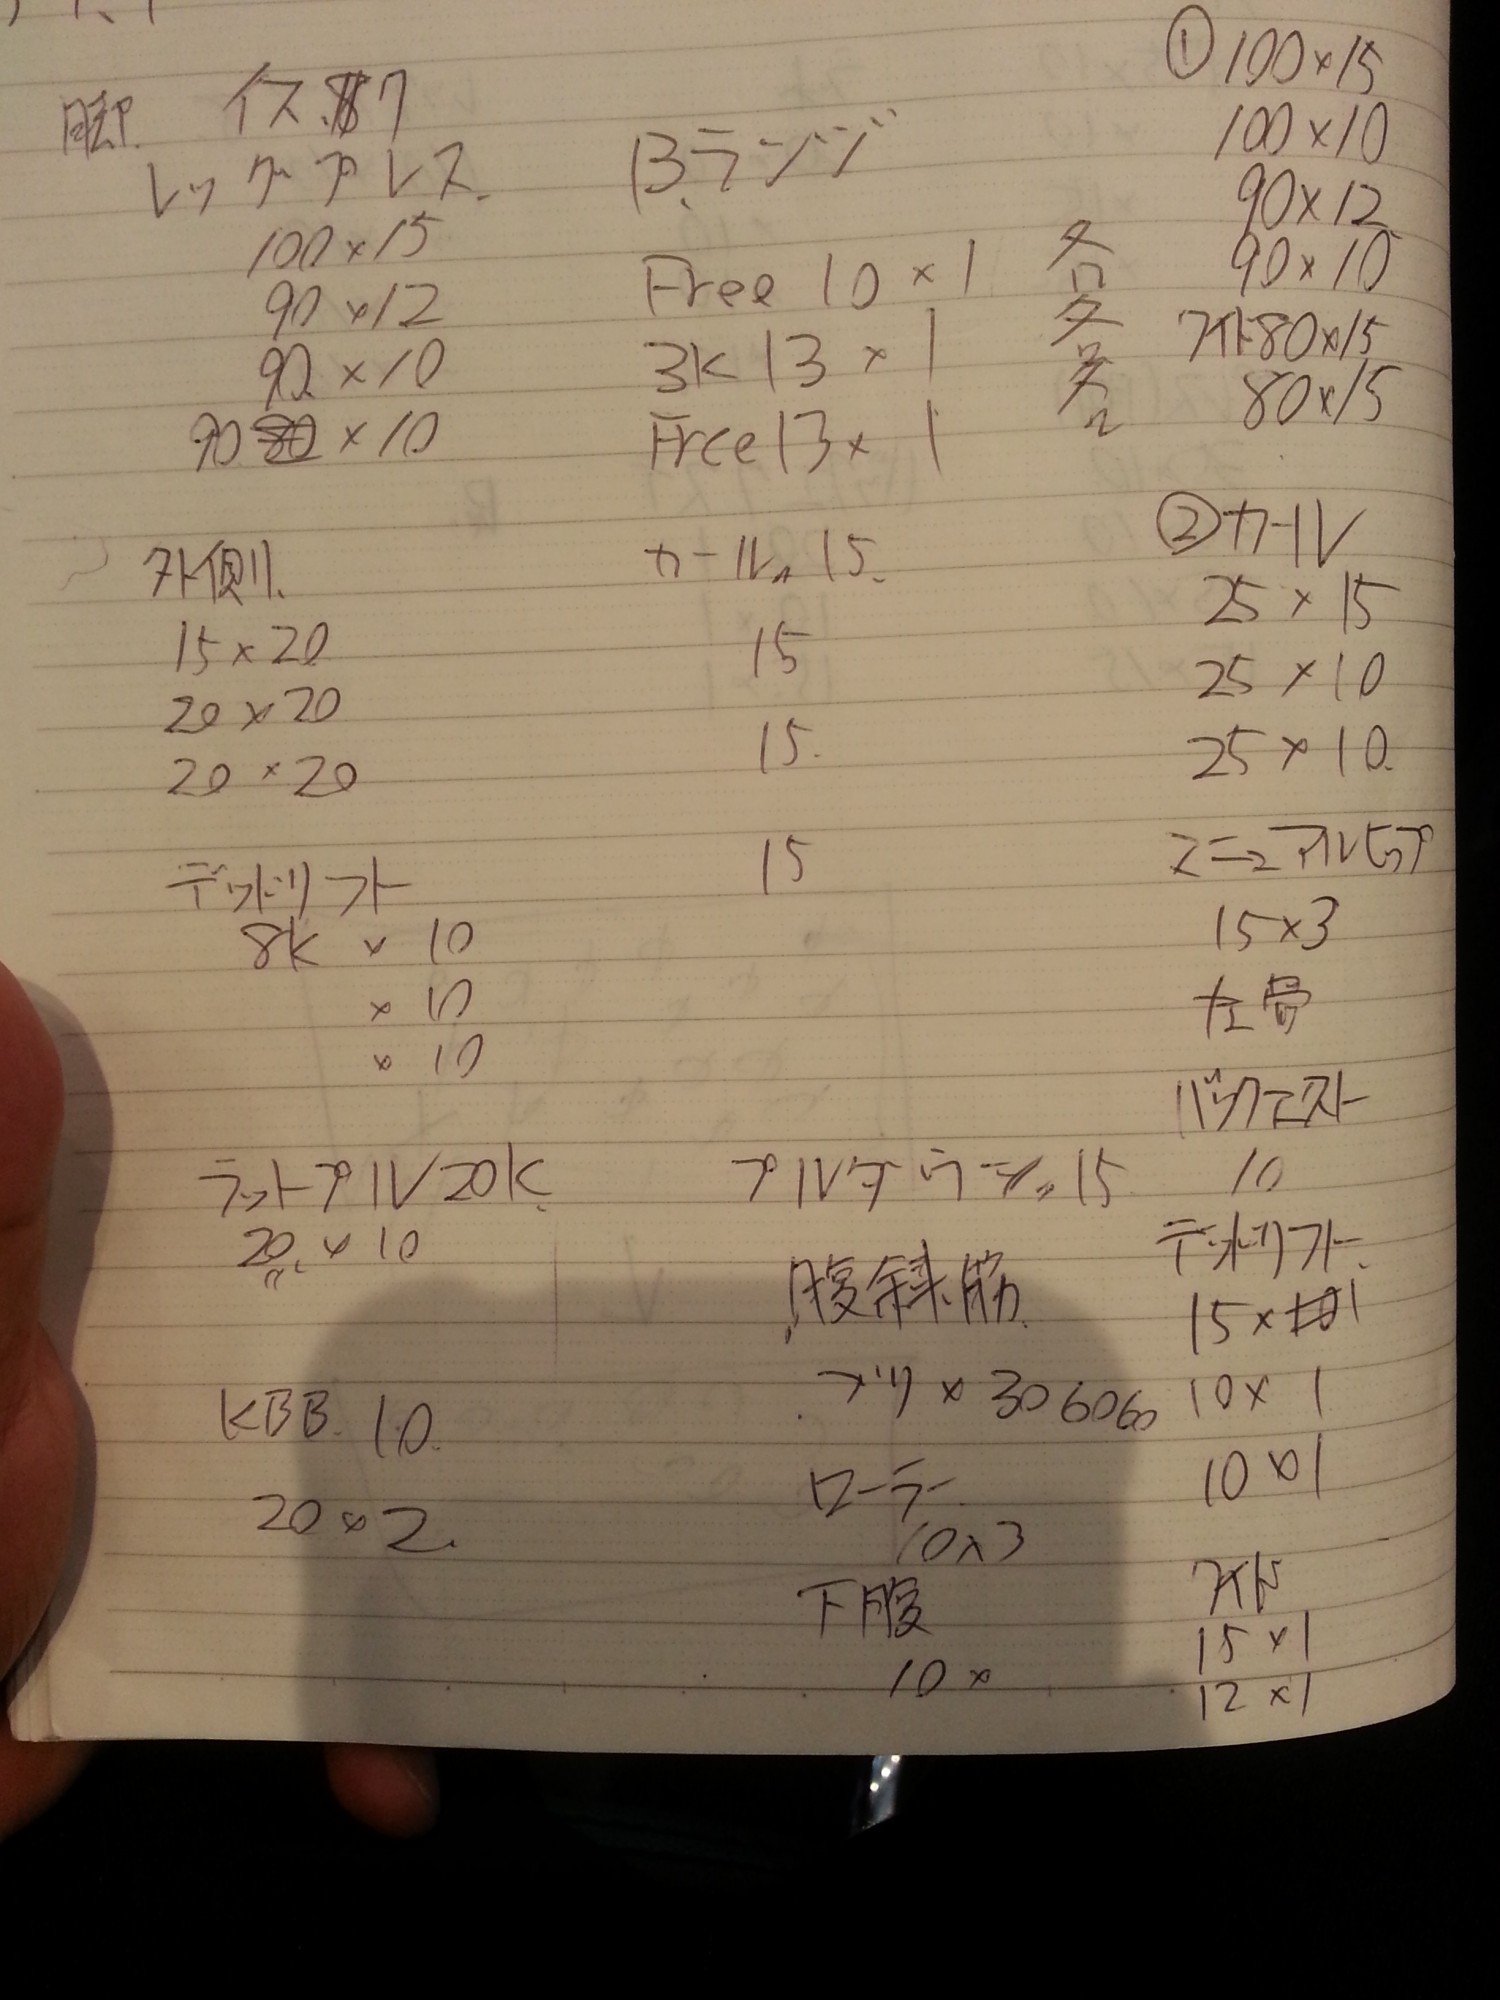 脚 イス 7
レッグプレス
100×15
90×12
90×10
90 ×10
外側
15×20
20×20
20×20
デットリフト
8k × 10
× 10
× 10
ラットプル 20K
20 × 10
KBB 10
20×2
B.ランジ
Free 10×1 各
3K 13×1 各
Free 13×1 各
カール 15
15
15
15
プルダウン 15
腹斜筋
×30 60 60
ローラー
10×3
下腹
10×
① 100×15
100×10
90×12
90×10
ワイド80×15
80×15
② カール
25×15
25×10
25×10
マニュアルヒップ
15×3
バックエクスト
10
デットリフト
15× 1
10×1
10×1
ワイド
15×1
12×1